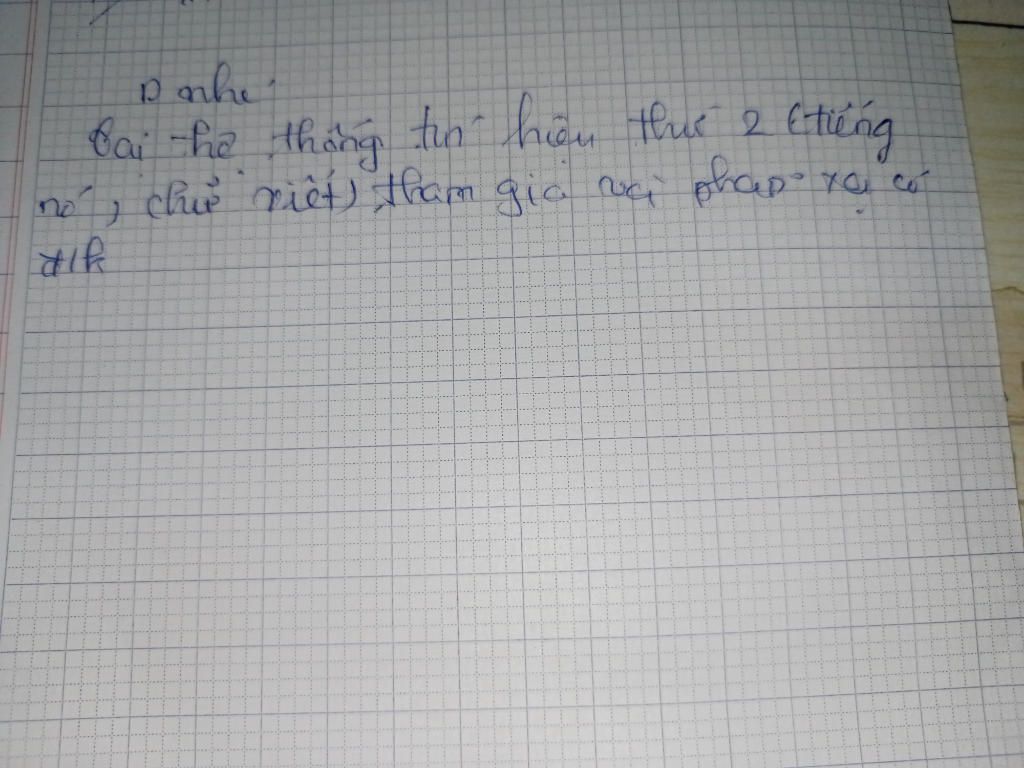 D nhé
Cai hệ thống tín hiệu thứ 2 (tiếng
nó, chữ viết) tham gia vai phản xạ có
đk